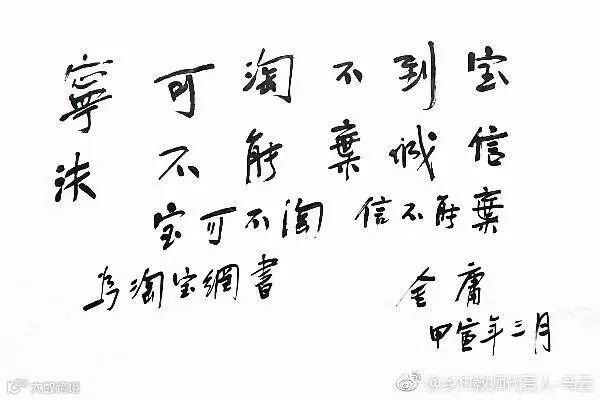 寧可淘不到宝
决不能棄诚信
宝可不淘 信不能棄
为淘宝網書
金庸
甲宣年三月
大数跨境
@乡村教师代言人-马云